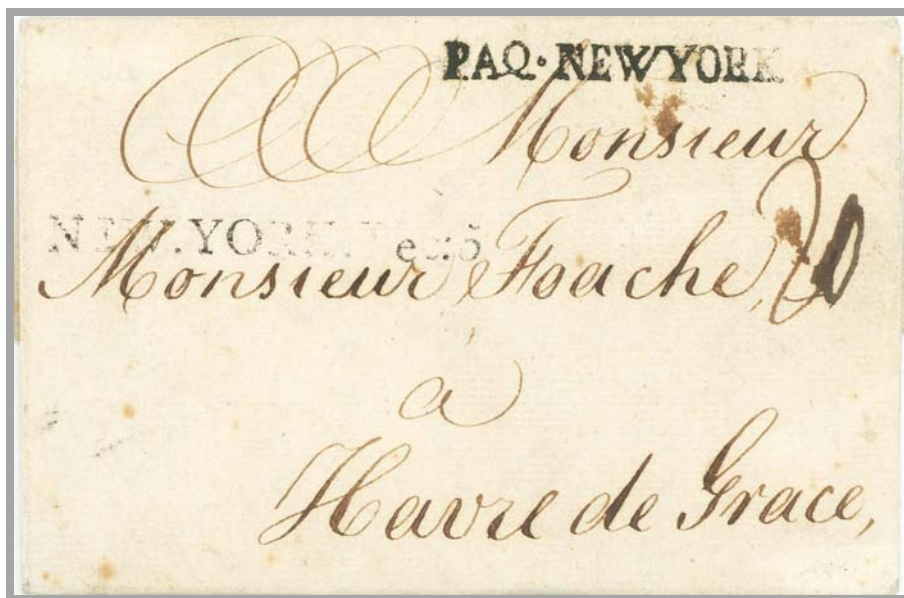 PAQ. NEWYORK
Monsieur
NEW.YORK
Monsieur Foache,
à
Havre de Grace,